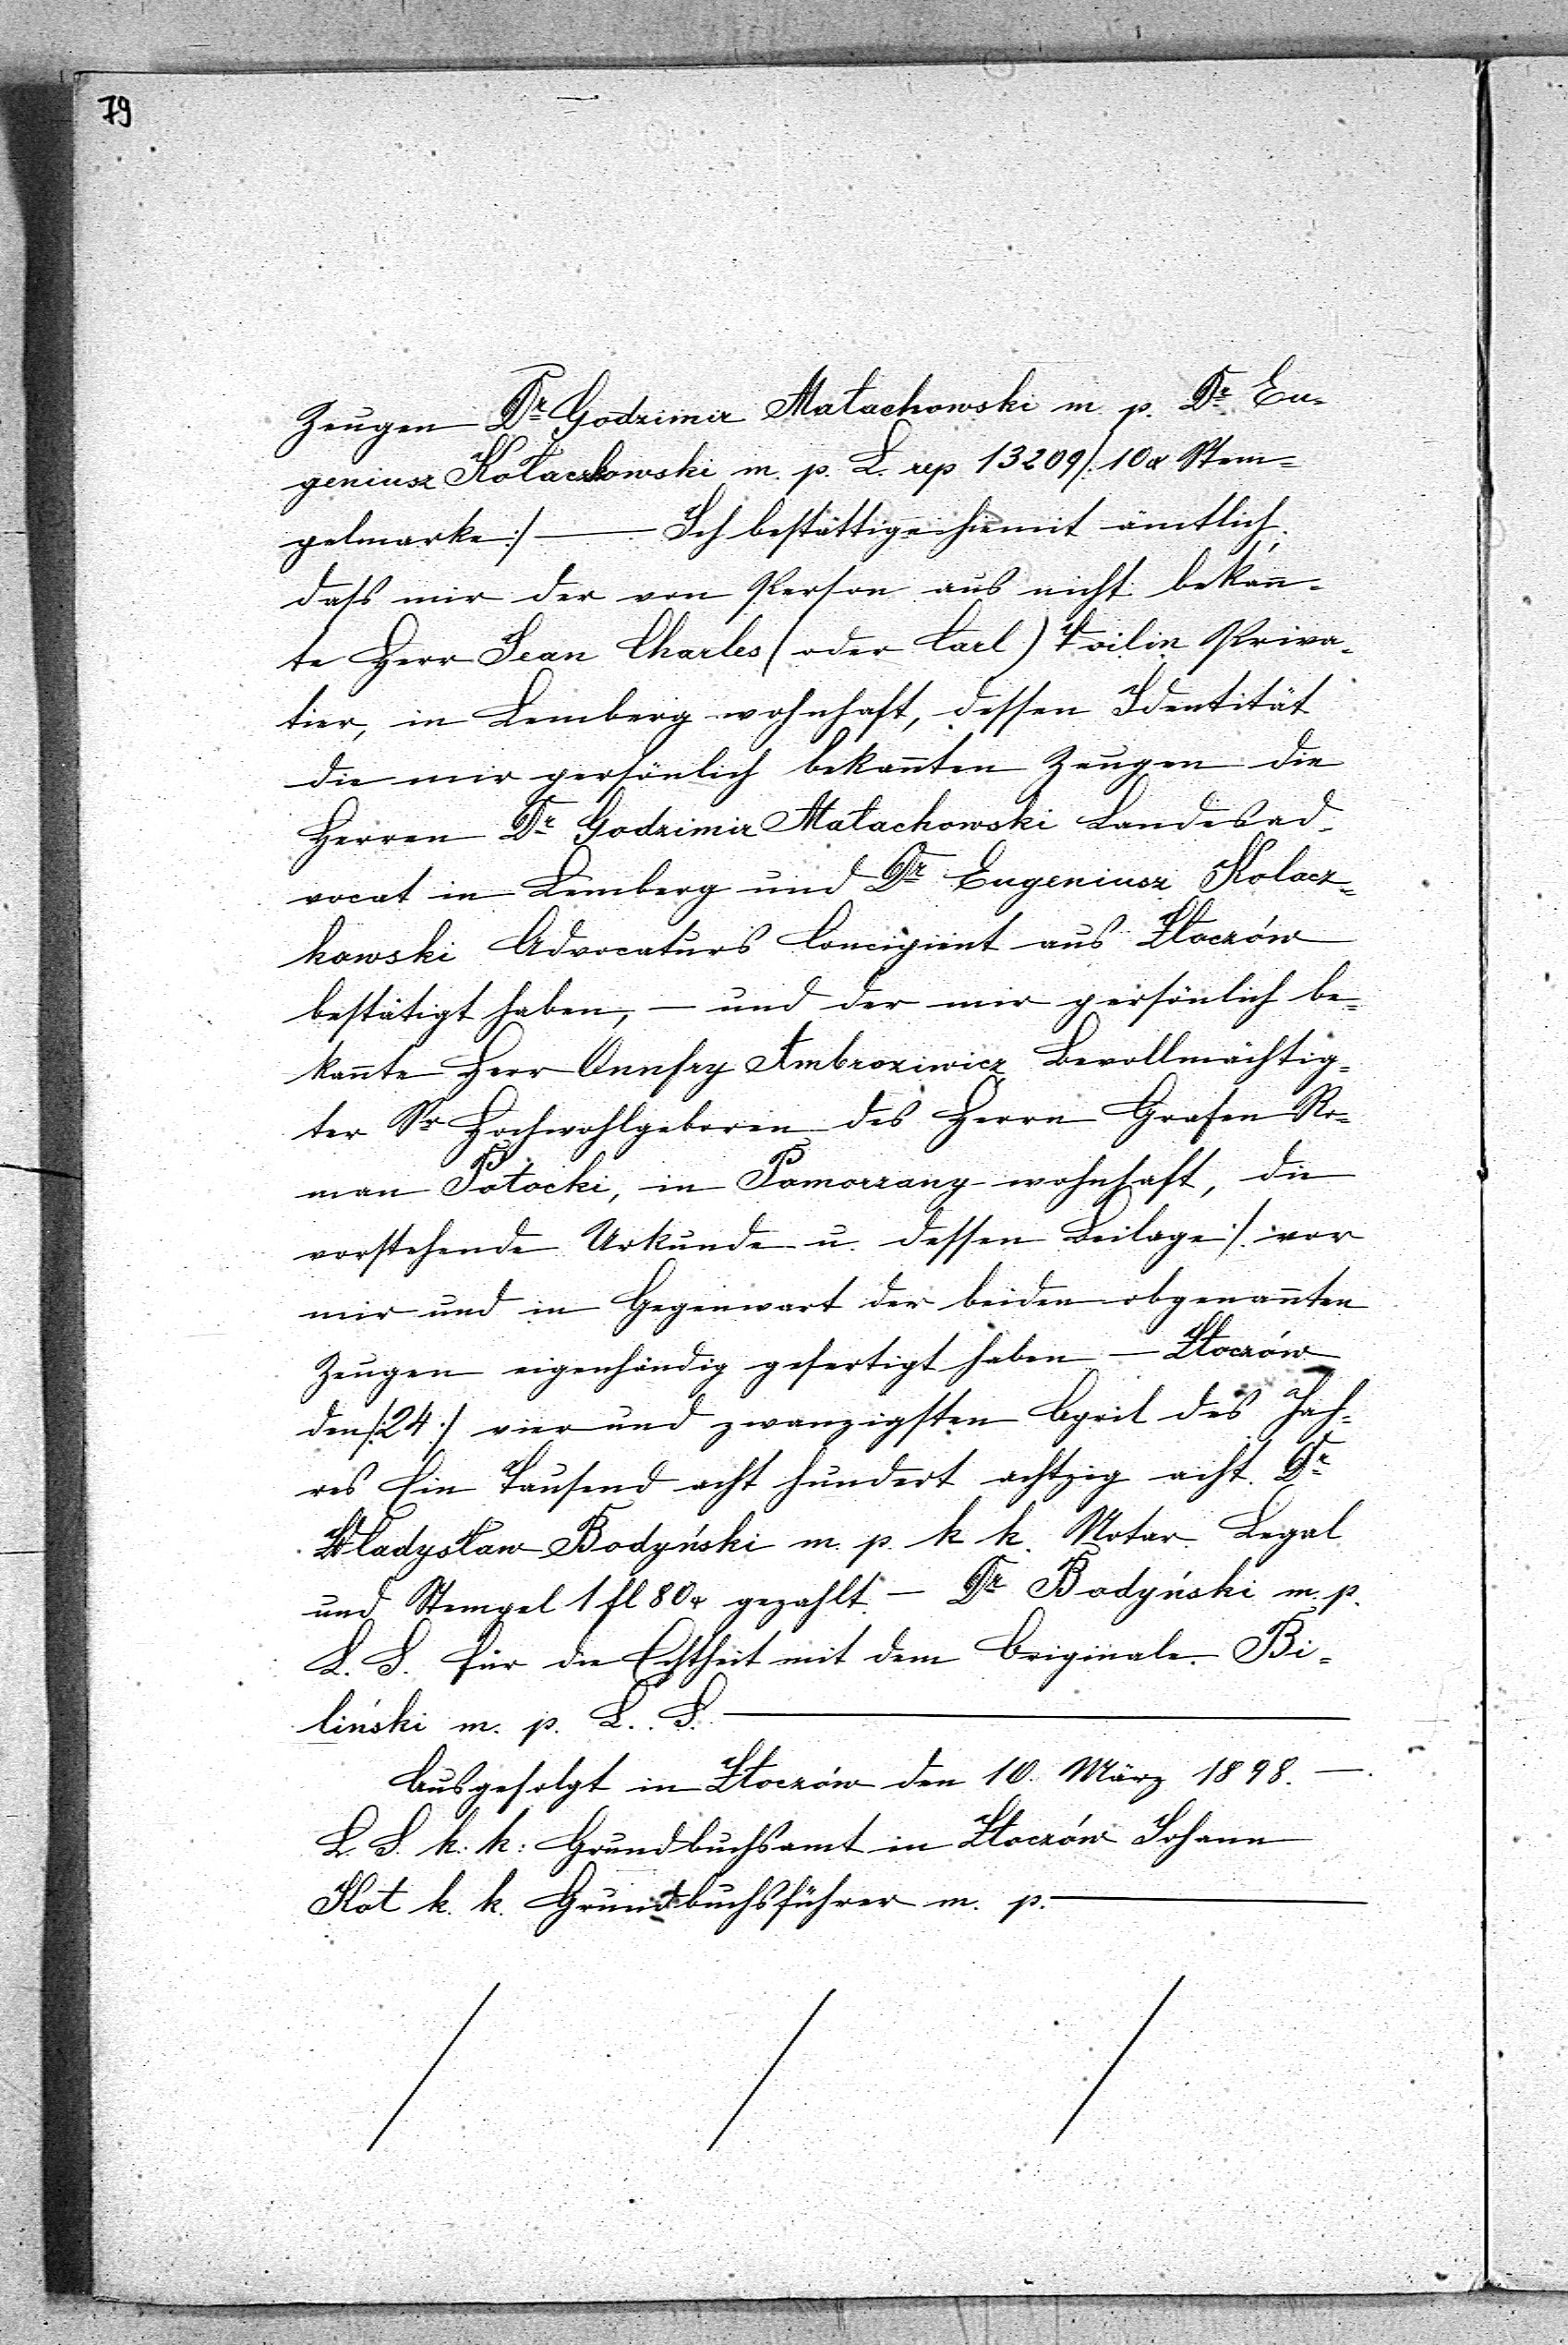 79
Zeugen Dr Godzimir Małachowski m. p. Dr Eu-
geniusz Kołaczkowski m. p. L. rep 13209/: 10 x Stem=
pelmarke :/ — Ich bestättige hiemit ämtlich,
daſs mir der von Person aus nicht bekan̄-
te Herr Jean Charles (oder Carl) Voilin Priva-
tier, in Lemberg wohnhaft, dessen Identität
die mir persönlich bekan̄ten Zeugen die
Herren Dr Godzimir Małachowski Landesad-
vocat in Lemberg und Dr Eugeniusz Kolacz=
kowski Advocaturs Concipient aus Złoczów
bestätigt haben, — und der mir persönlich be-
kan̄te Herr Onufry Ambroziwicz Bevollmächtig=
ter Sr Hochwohlgeboren des Herrn Grafen Ro=
man Potocki, in Pomorzany wohnhaft, die
vorstehende Urkunde u. dessen Beilage ·/. vor
mir und in Gegenwart der beiden obgenan̄ten
Zeugen eigenhändig gefertigt haben — Złoczów
den /:24:/ vier und zwanzigsten April des Jah=
res Ein Tausend acht hundert achtzig acht. Dr
Władysław Bodyński m. p. k k. Notar. Legal
und Stempel 1 fl 80 x gezahlt. — Dr Bodyński m. p.
L. S. Für die Echtheit mit dem Originale. Bi=
liński m. p. L. S. —
Ausgefolgt in Złoczów den 10. März 1898. —
L. S. k. k: Grundbuchsamt in Złoczów Johann
Kot k. k. Grundbuchsführer m. p. —